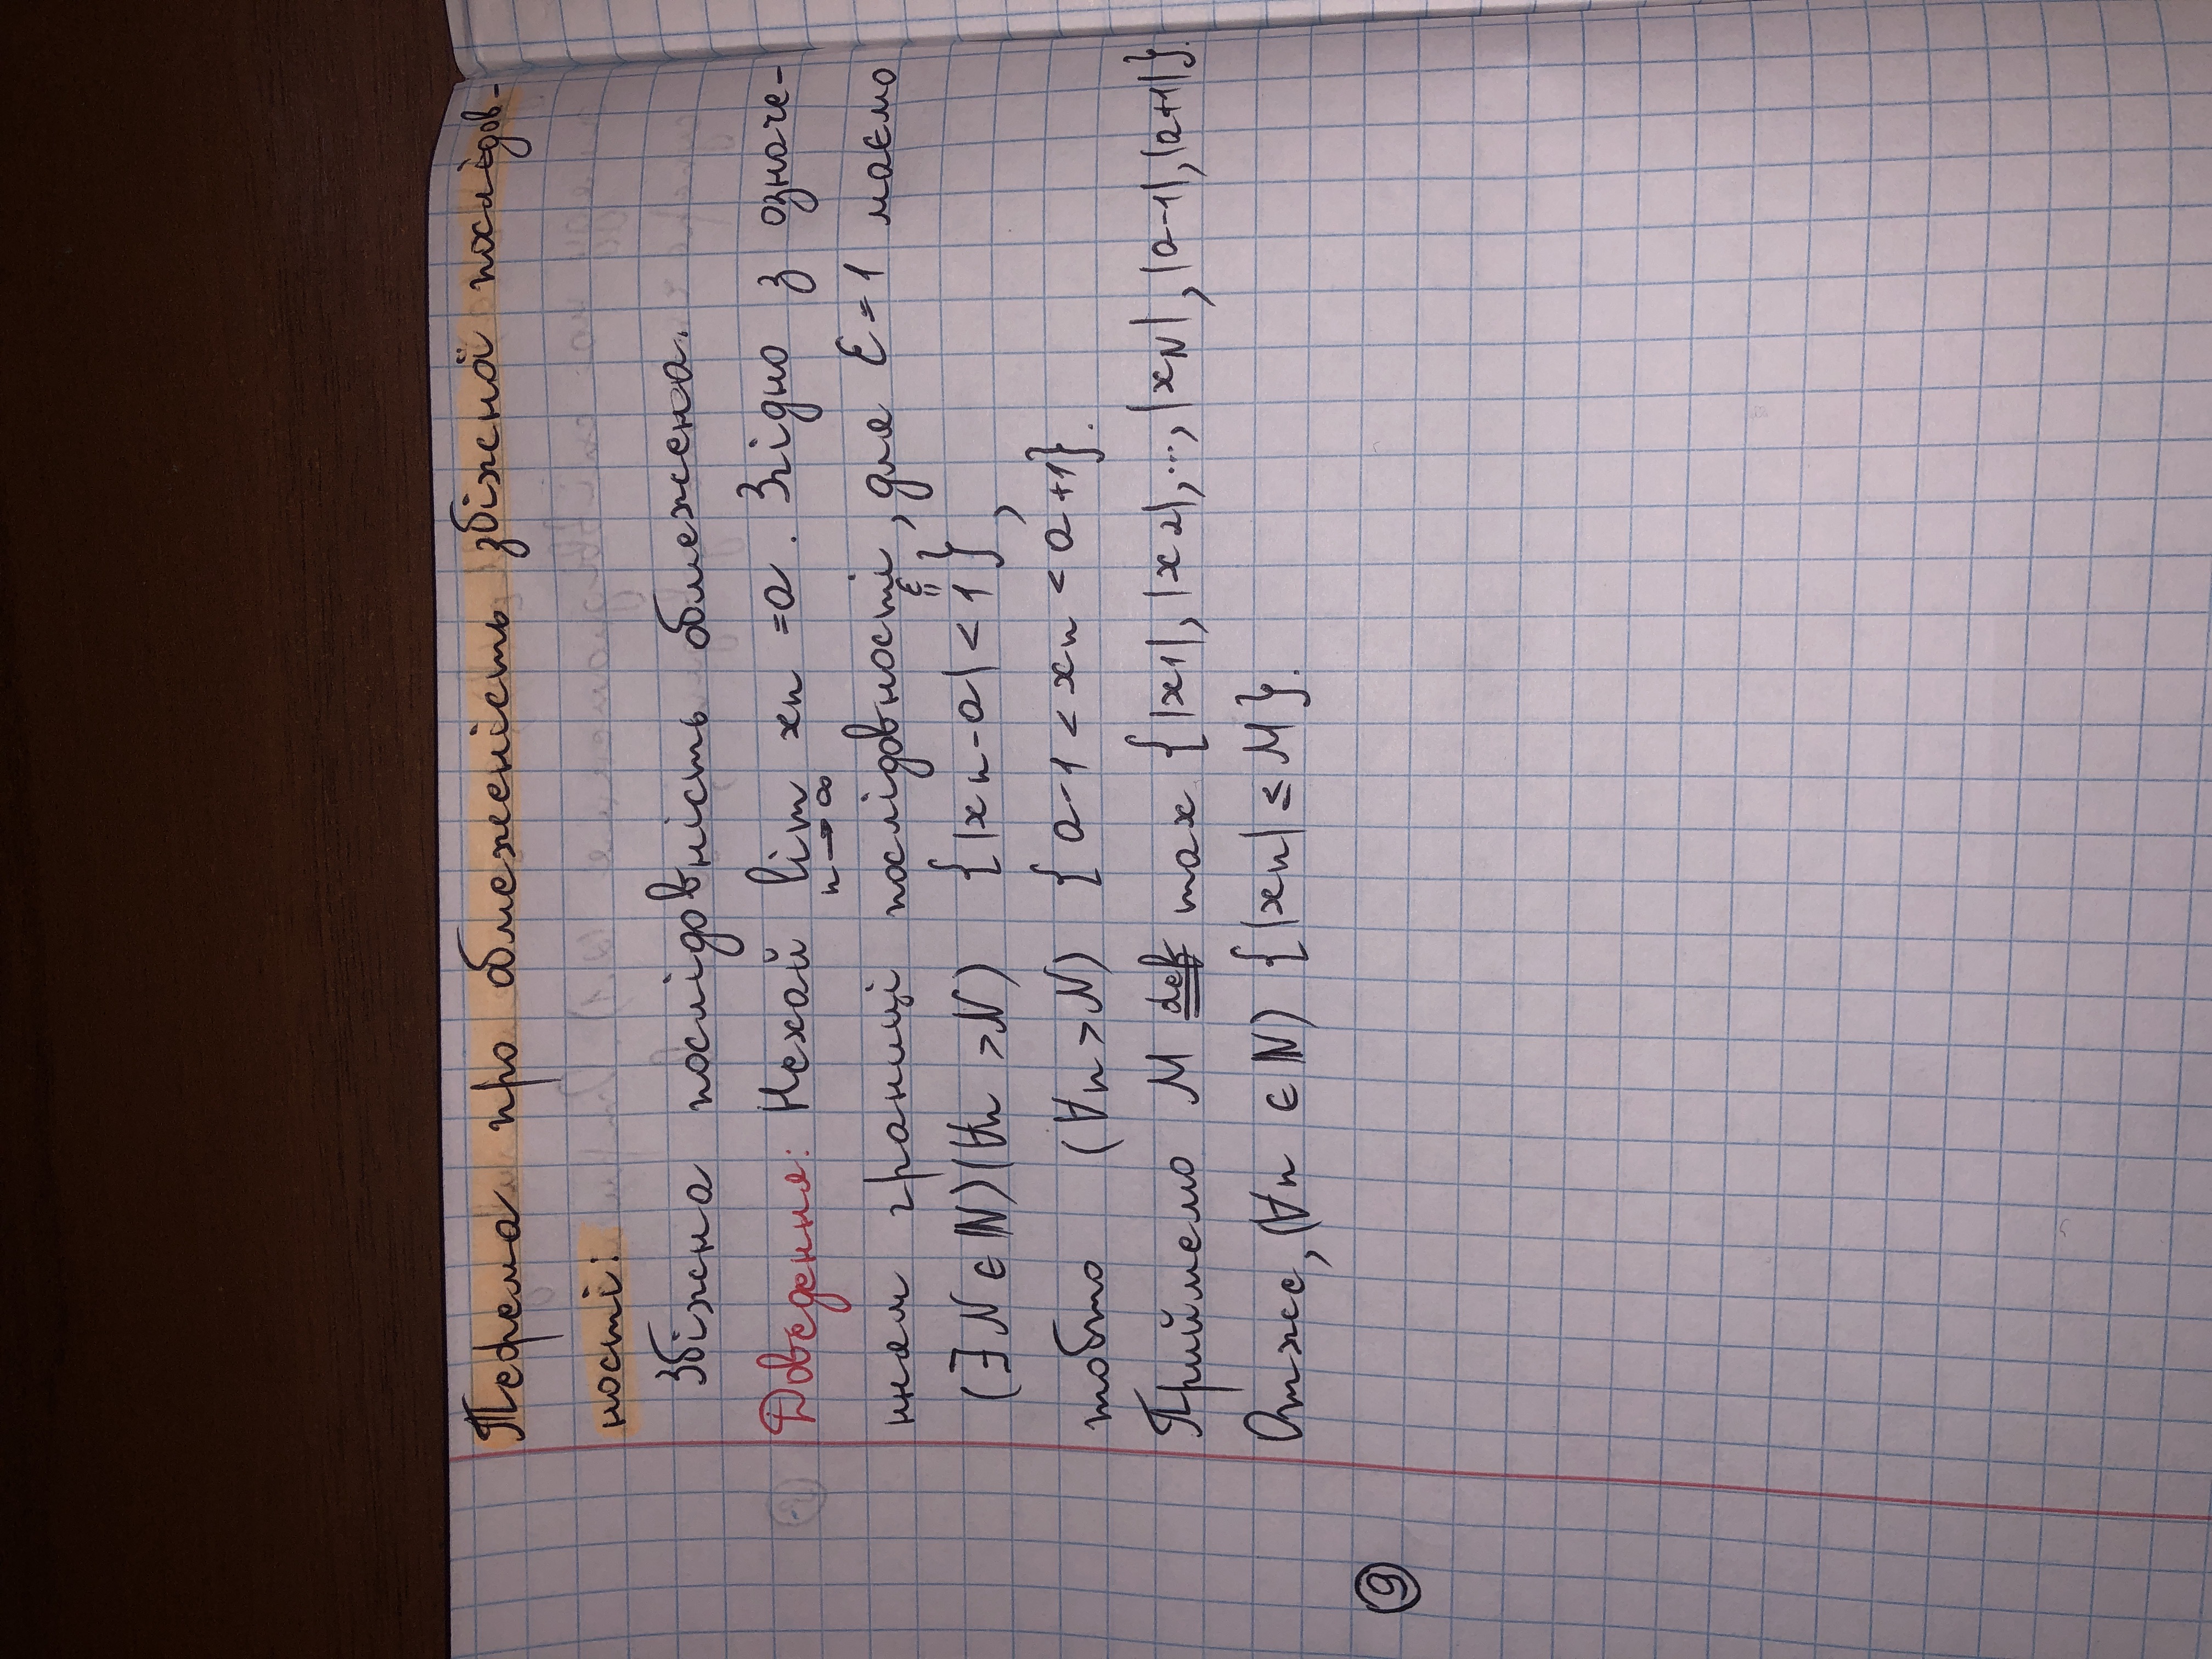 Теорема про обмеженість збіжної послідов-
ності:
Збіжна послідовність обмежена.
Доведення: Нехай lim xₙ = a. Згідно з означе-
n → ∞
нням границі послідовності, для ε = 1 маємо
ε
||
(∃ N ∈ ℕ)(∀n > N) {|xₙ - a| < 1},
тобто (∀n > N) {a - 1 < xₙ < a + 1}.
Приймемо M def max {|x1|, |x2|, ..., |x_N|, |a-1|, |a+1|}.
Отже, (∀n ∈ ℕ) {|xₙ| ≤ M}.
9